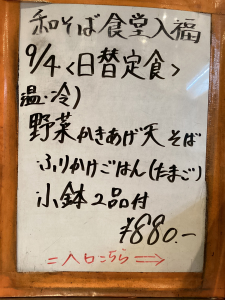 和そば食堂入福
9/4<日替定食>
温・冷)
野菜かきあげ天そば
ふりかけごはん(たまご)
小鉢2品付
¥880.-
=入口こちら⇒